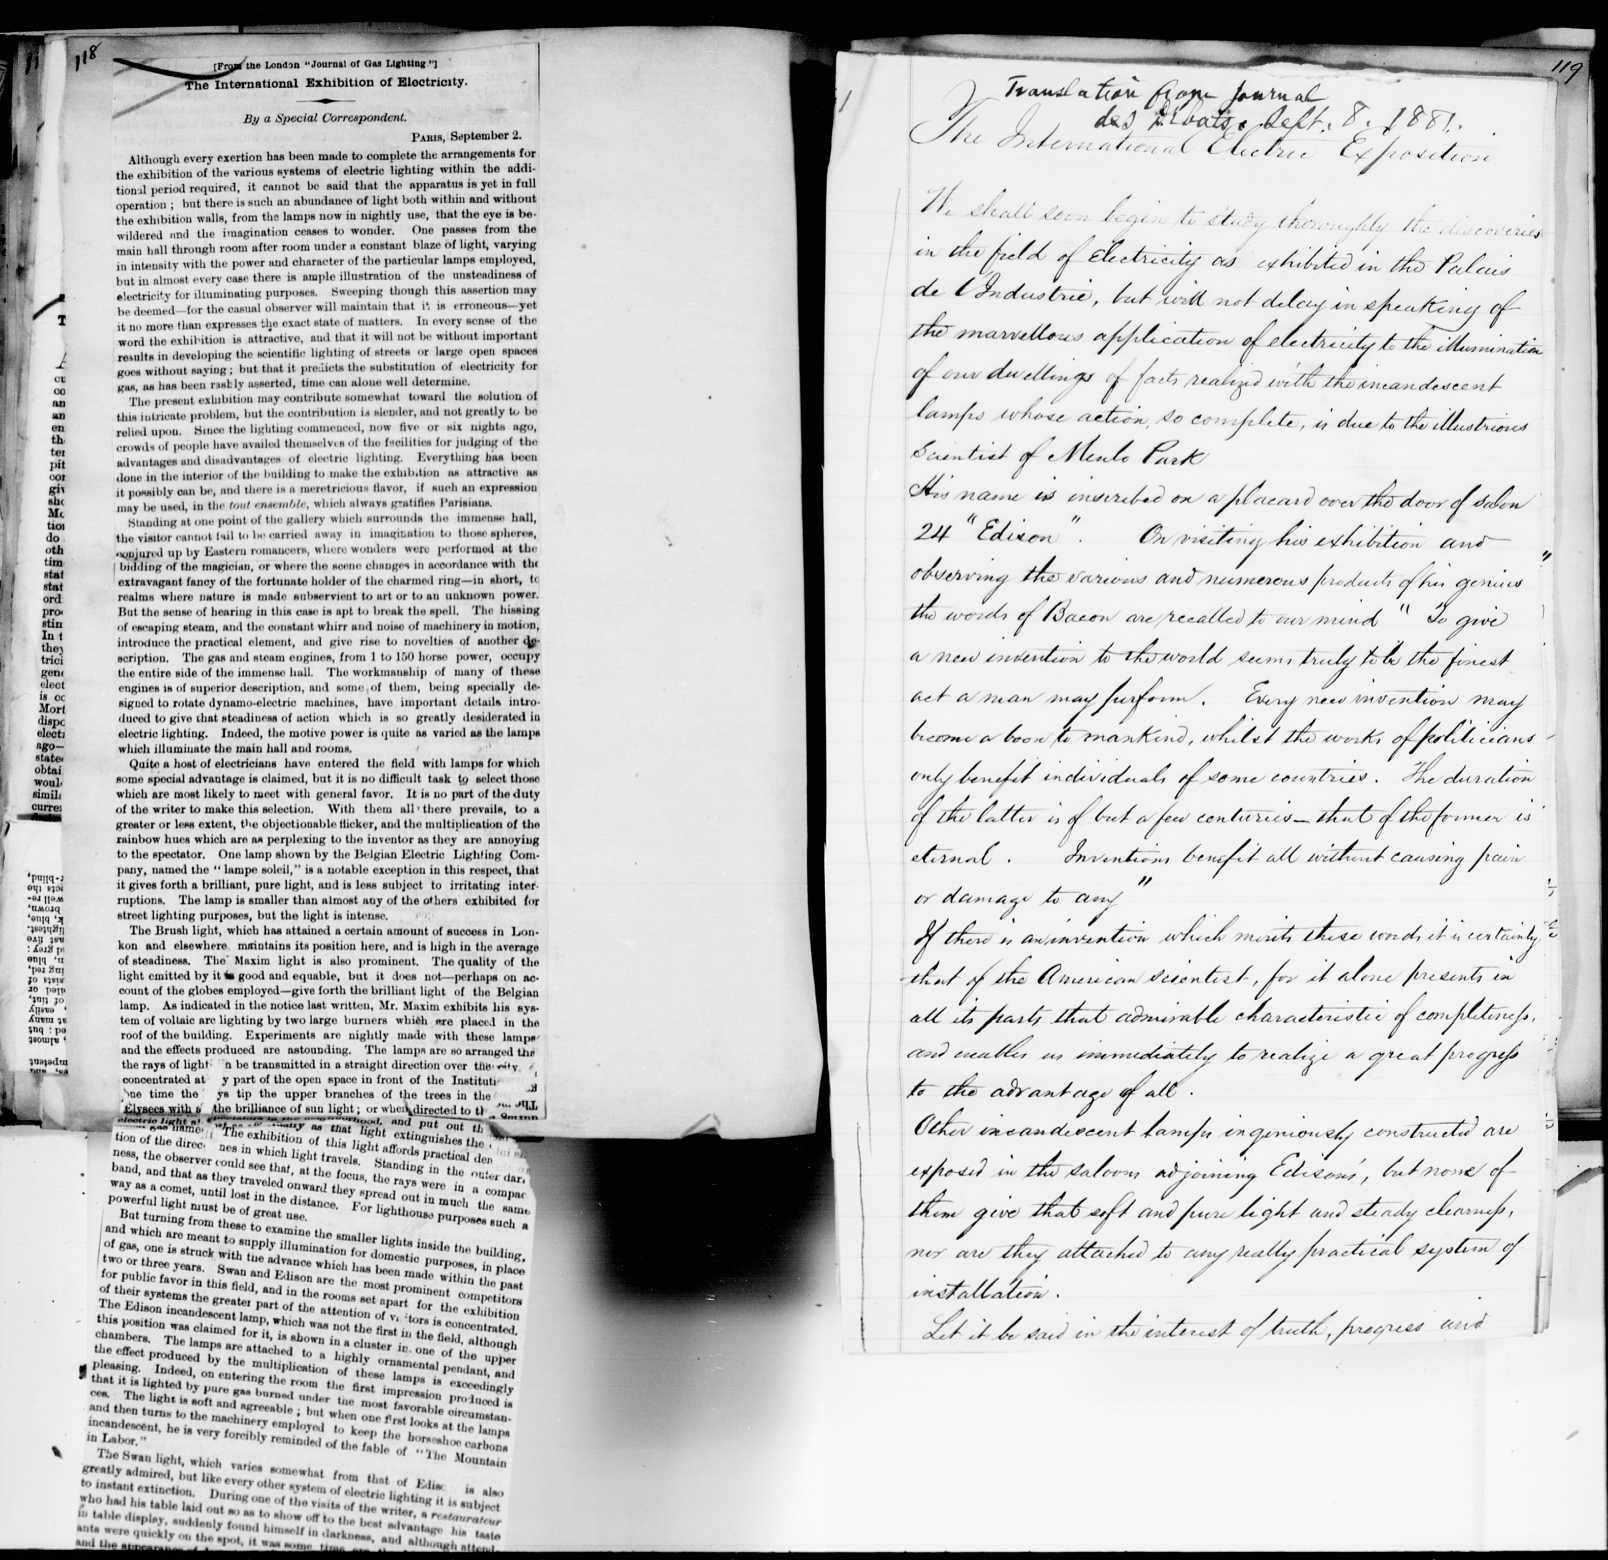 118
[From the London "Journal of Gas Lighting."]
The International Exhibition of Electricity.
By a Special Correspondent.
PARIS, September 2.
Although every exertion has been made to complete the arrangements for
the exhibition of the various systems of electric lighting within the addi-
tional period required, it cannot be said that the apparatus is yet in full
operation; but there is such an abundance of light both within and without
the exhibition walls, from the lamps now in nightly use, that the eye is be-
wildered and the imagination ceases to wonder. One passes from the
main hall through room after room under a constant blaze of light, varying
in intensity with the power and character of the particular lamps employed,
but in almost every case there is ample illustration of the unsteadiness of
electricity for illuminating purposes. Sweeping though this assertion may
be deemed—for the casual observer will maintain that it is erroneous—yet
it no more than expresses the exact state of matters. In every sense of the
word the exhibition is attractive, and that it will not be without important
results in developing the scientific lighting of streets or large open spaces
goes without saying; but that it predicts the substitution of electricity for
gas, as has been rashly asserted, time can alone well determine.
The present exhibition may contribute somewhat toward the solution of
this intricate problem, but the contribution is slender, and not greatly to be
relied upon. Since the lighting commenced, now five or six nights ago,
crowds of people have availed themselves of the facilities for judging of the
advantages and disadvantages of electric lighting. Everything has been
done in the interior of the building to make the exhibition as attractive as
it possibly can be, and there is a meretricious flavor, if such an expression
may be used, in the tout ensemble, which always gratifies Parisians.
Standing at one point of the gallery which surrounds the immense hall,
the visitor cannot fail to be carried away in imagination to those spheres,
conjured up by Eastern romancers, where wonders were performed at the
bidding of the magician, or where the scene changes in accordance with the
extravagant fancy of the fortunate holder of the charmed ring—in short, to
realms where nature is made subservient to art or to an unknown power.
But the sense of hearing in this case is apt to break the spell. The hissing
of escaping steam, and the constant whirr and noise of machinery in motion,
introduce the practical element, and give rise to novelties of another de-
scription. The gas and steam engines, from 1 to 150 horse power, occupy
the entire side of the immense hall. The workmanship of many of these
engines is of superior description, and some of them, being specially de-
signed to rotate dynamo-electric machines, have important details intro-
duced to give that steadiness of action which is so greatly desiderated in
electric lighting. Indeed, the motive power is quite as varied as the lamps
which illuminate the main hall and rooms.
Quite a host of electricians have entered the field with lamps for which
some special advantage is claimed, but it is no difficult task to select those
which are most likely to meet with general favor. It is no part of the duty
of the writer to make this selection. With them all there prevails, to a
greater or less extent, the objectionable flicker, and the multiplication of the
rainbow hues which are as perplexing to the inventor as they are annoying
to the spectator. One lamp shown by the Belgian Electric Lighting Com-
pany, named the "lampe soleil," is a notable exception in this respect, that
it gives forth a brilliant, pure light, and is less subject to irritating inter-
ruptions. The lamp is smaller than almost any of the others exhibited for
street lighting purposes, but the light is intense.
The Brush light, which has attained a certain amount of success in Lon-
kon and elsewhere maintains its position here, and is high in the average
of steadiness. The Maxim light is also prominent. The quality of the
light emitted by it is good and equable, but it does not—perhaps on ac-
count of the globes employed—give forth the brilliant light of the Belgian
lamp. As indicated in the notice last written, Mr. Maxim exhibits his sys-
tem of voltaic arc lighting by two large burners which are placed in the
roof of the building. Experiments are nightly made with these lamps
and the effects produced are astounding. The lamps are so arranged the
the rays of light n be transmitted in a straight direction over the city,
concentrated at y part of the open space in front of the Instituti
one time the ys tip the upper branches of the trees in the
Elysees with the brilliance of sun light; or when directed to th
and put out th
as that light extinguishes the
name. The exhibition of this light affords practical den
tion of the direc nes in which light travels. Standing in the outer dark
ness, the observer could see that, at the focus, the rays were in a compac
band, and that as they traveled onward they spread out in much the same
way as a comet, until lost in the distance. For lighthouse purposes such a
powerful light must be of great use.
But turning from these to examine the smaller lights inside the building,
and which are meant to supply illumination for domestic purposes, in place
of gas, one is struck with the advance which has been made within the past
two or three years. Swan and Edison are the most prominent competitors
for public favor in this field, and in the rooms set apart for the exhibition
of their systems the greater part of the attention of vi tors is concentrated.
The Edison incandescent lamp, which was not the first in the field, although
this position was claimed for it, is shown in a cluster in one of the upper
chambers. The lamps are attached to a highly ornamental pendant, and
the effect produced by the multiplication of these lamps is exceedingly
pleasing. Indeed, on entering the room the first impression produced is
that it is lighted by pure gas burned under the most favorable circumstan-
ces. The light is soft and agreeable; but when one first looks at the lamps
and then turns to the machinery employed to keep the horseshoe carbons
incandescent, he is very forcibly reminded of the fable of "The Mountain
in Labor."
The Swan light, which varies somewhat from that of Edisc is also
greatly admired, but like every other system of electric lighting it is subject
to instant extinction. During one of the visits of the writer, a restaurateur
who had his table laid out so as to show off to the best advantage his taste
in table display, suddenly found himself in darkness, and although attend-
ants were quickly on the spot, it was some time
and the appearance
119
Translation from Journal
des Debats. Sept. 8. 1881.
The International Electric Exposition
We shall soon begin to study thoroughly the discoveries
in the field of Electricity as exhibited in the Palais
de l'Industrie, but will not delay in speaking of
the marvellous application of electricity to the illumination
of our dwellings of facts realized with the incandescent
lamps whose action, so complete, is due to the illustrious
Scientist of Menlo Park
His name is inscribed on a placard over the door of salon
24 "Edison". On visiting his exhibition and
observing the various and numerous products of his genius
the words of Bacon are recalled to our mind "To give
a new invention to the world seems truly to be the finest
act a man may perform. Every new invention may
become a boon to mankind, whilst the works of politicians
only benefit individuals of some countries. The duration
of the latter is of but a few centuries—that of the former is
eternal. Inventions benefit all without causing pain
or damage to any"
If there is an invention which merits these words it is certainly
that of the American scientist, for it alone presents in
all its parts that admirable characteristic of completeness,
and enables us immediately to realize a great progress
to the advantage of all.
Other incandescent lamps ingeniously constructed are
exposed in the saloons adjoining Edison's, but none of
them give that soft and pure light and steady clearness,
nor are they attached to any really practical system of
installation.
Let it be said in the interest of truth, progress and